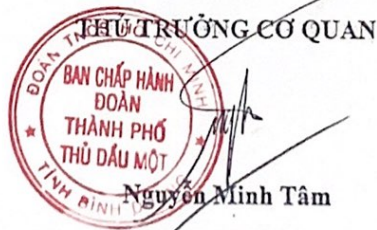 THỦ TRƯỞNG CƠ QUAN
ĐOÀN TN CHÍ MINH
BAN CHẤP HÀNH
ĐOÀN
THÀNH PHỐ
THỦ DẦU MỘT
TỈNH BÌNH
Nguyễn Minh Tâm